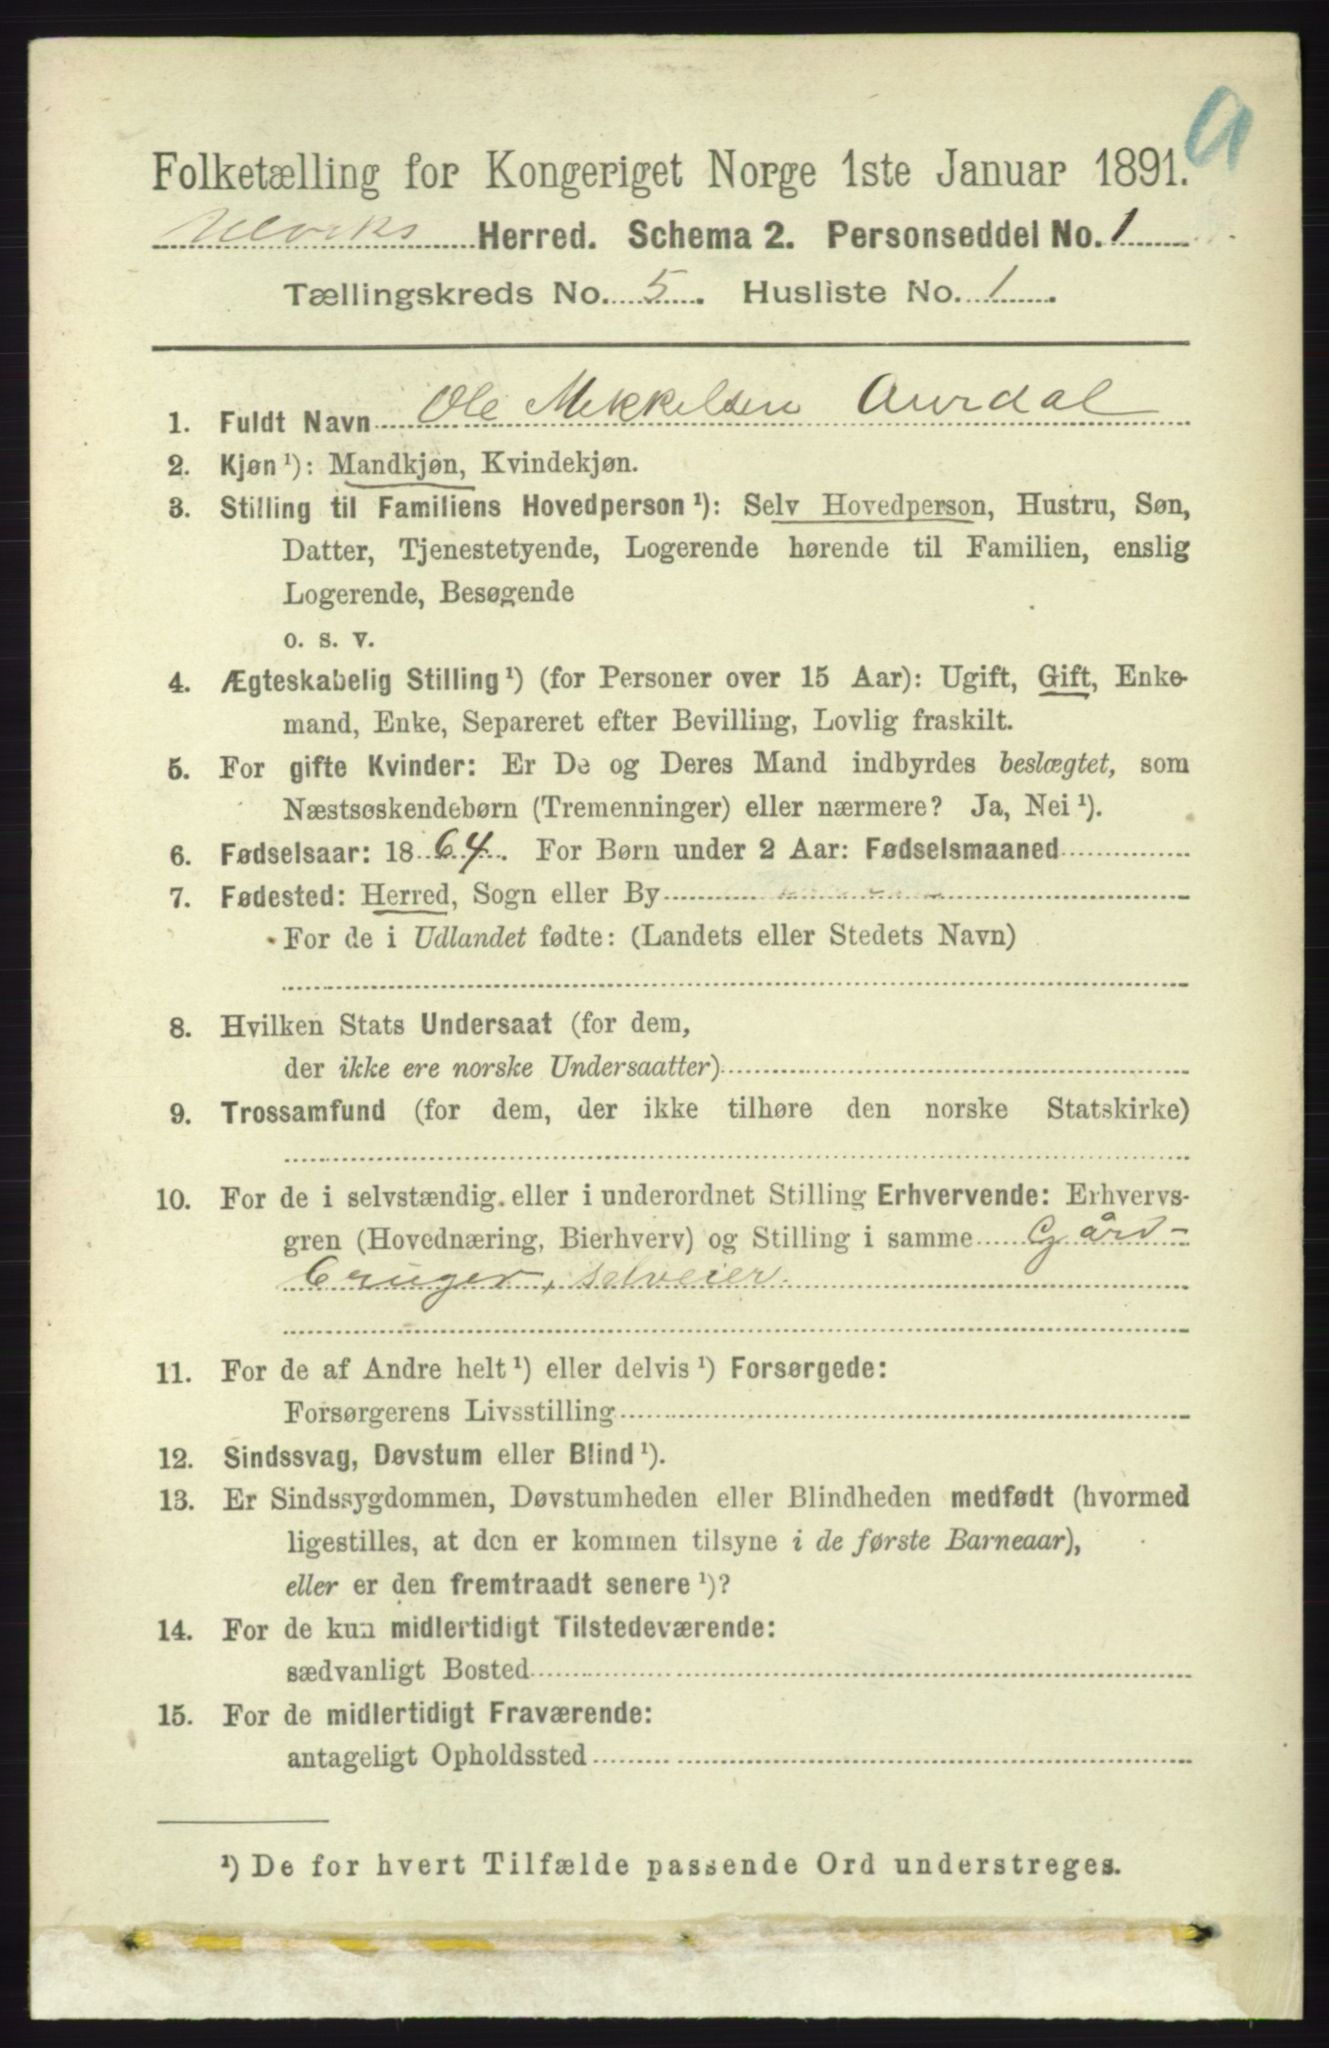 a
Folketælling for Kongeriget Norge 1ste Januar 1891.
Ulviks Herred. Schema 2. Personseddel No. 1
Tællingskreds No. 5. Husliste No. 1.
1. Fuldt Navn Ole Mikkelsen Aurdal
2. Kjøn¹): Mandkjøn, Kvindekjøn.
3. Stilling til Familiens Hovedperson¹): Selv Hovedperson, Hustru, Søn,
Datter, Tjenestetyende, Logerende hørende til Familien, enslig
Logerende, Besøgende
o. s. v.
4. Ægteskabelig Stilling¹) (for Personer over 15 Aar): Ugift, Gift, Enke-
mand, Enke, Separeret efter Bevilling, Lovlig fraskilt.
5. For gifte Kvinder: Er De og Deres Mand indbyrdes beslægtet, som
Næstsøskendebørn (Tremenninger) eller nærmere? Ja, Nei¹).
6. Fødselsaar: 1864. For Børn under 2 Aar: Fødselsmaaned
7. Fødested: Herred, Sogn eller By
For de i Udlandet fødte: (Landets eller Stedets Navn)
8. Hvilken Stats Undersaat (for dem,
der ikke ere norske Undersaatter)
9. Trossamfund (for dem, der ikke tilhøre den norske Statskirke)
10. For de i selvstændig eller i underordnet Stilling Erhvervende: Erhvervs-
gren (Hovednæring, Bierhverv) og Stilling i samme Gård-
bruger, selveier.
11. For de af Andre helt¹) eller delvis¹) Forsørgede:
Forsørgerens Livsstilling
12. Sindssvag, Døvstum eller Blind¹).
13. Er Sindssygdommen, Døvstumheden eller Blindheden medfødt (hvormed
ligestilles, at den er kommen tilsyne i de første Barneaar),
eller er den fremtraadt senere¹)?
14. For de kun midlertidigt Tilstedeværende:
sædvanligt Bosted
15. For de midlertidigt Fraværende:
antageligt Opholdssted
¹) De for hvert Tilfælde passende Ord understreges.